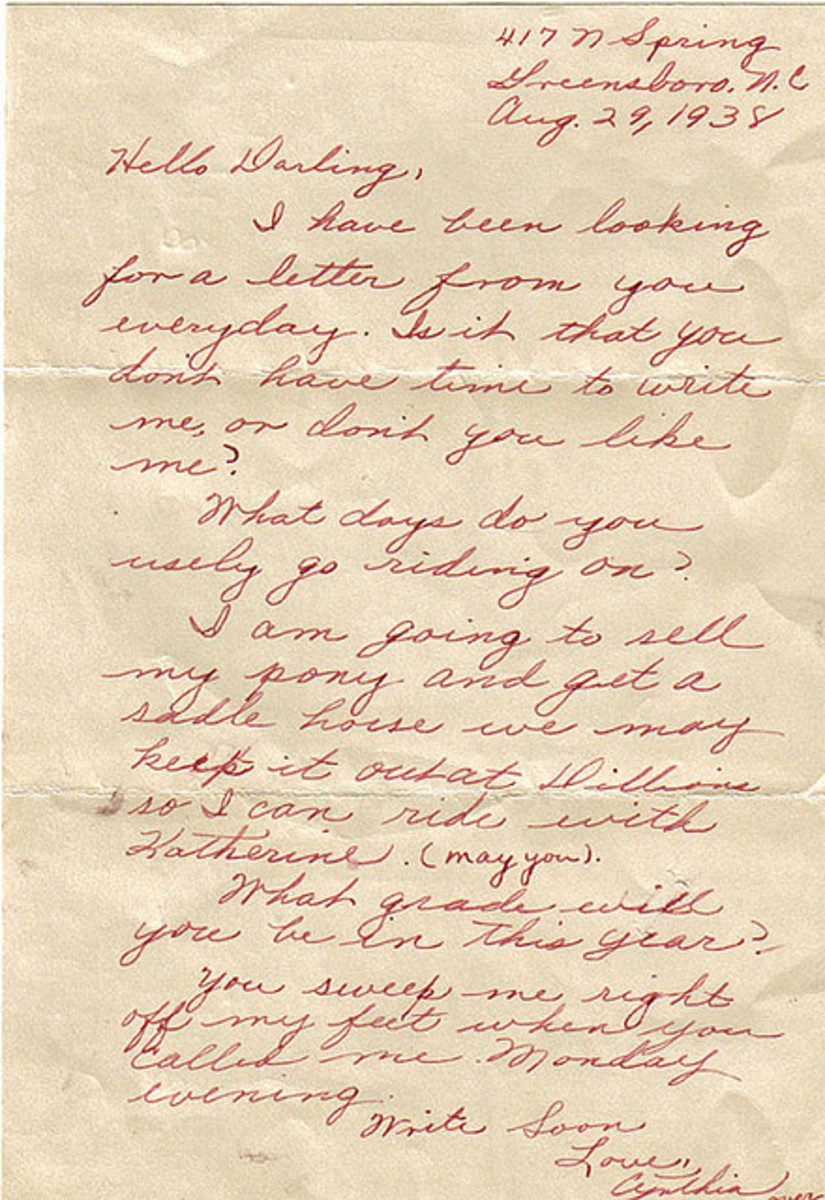 417 N Spring
Greensboro. N.C
Aug. 29, 1938
Hello Darling,
I have been looking
for a letter from you
everyday. Is it that you
don't have time to write
me, or don't you like
me?
What days do you
usely go riding on?
I am going to sell
my pony and get a
sadle horse we may
keep it out at Dillions
so I can ride with
Katherine. (may you).
What grade will
you be in this year?
You sweep me right
off my feet when you
called me Monday
evening.
Write Soon
Love,,
Cynthia
over